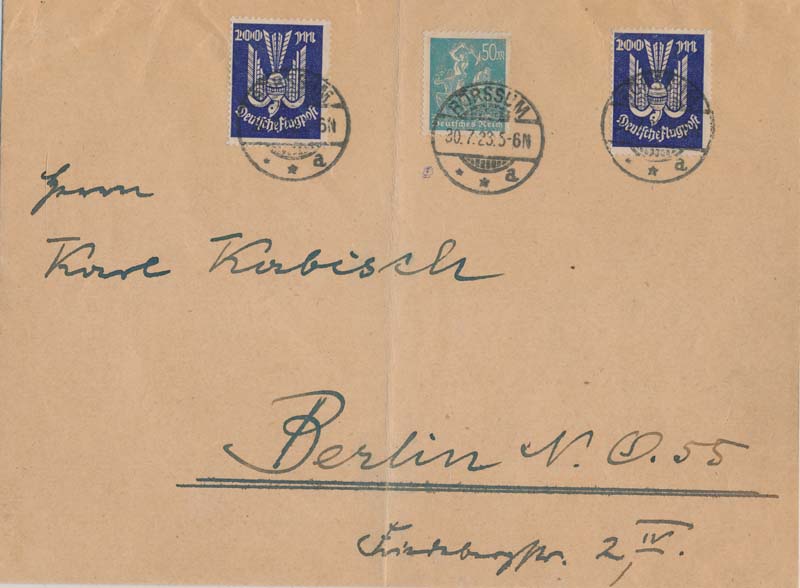 200 M
Deutsche Flugpost
50 M
Deutsches Reich
200 M
Deutsche Flugpost
6N
a
BÖRSSUM
30.7.23.5-6N
a
a
Herrn
Karl Kabisch
Berlin N.O.55
Friedebergstr. 2 IV.